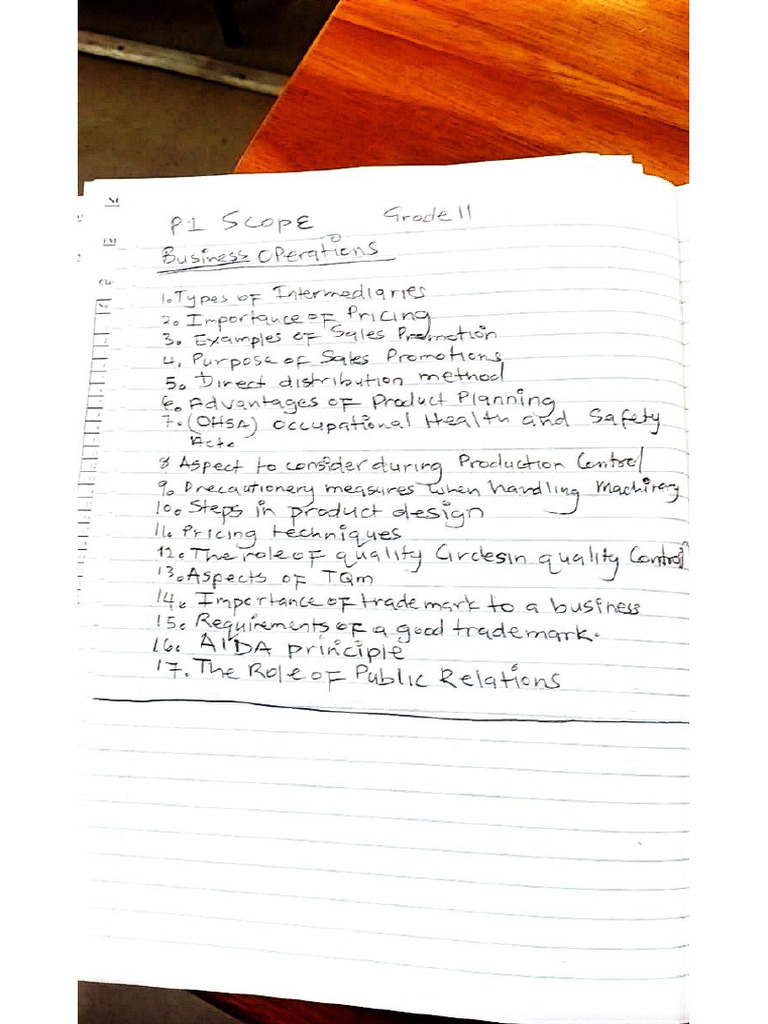 P1 SCOPE Grade 11
Business Operations
1. Types of Intermediaries
2. Importance of Pricing
3. Examples of Sales Promotion
4. Purpose of Sales Promotions
5. Direct distribution method
6. Advantages of Product Planning
7. (OHSA) Occupational Health and Safety
Act.
8 Aspect to consider during Production Control
9. Precautionery measures when handling Machinery
10. Steps in product design
11. Pricing techniques
12. The role of quality Circles in quality Control
13. Aspects of TQM
14. Importance of trademark to a business
15. Requirements of a good trademark.
16. AIDA principle
17. The Role of Public Relations